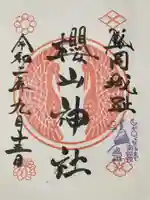 盛岡城址
櫻山神社
令和二年九月十三日